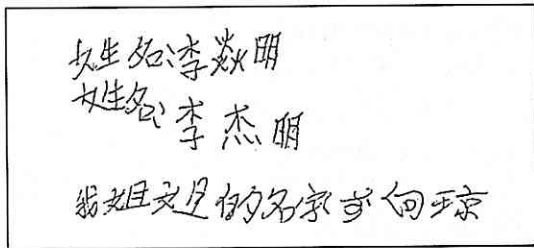 姓名:李焱明
姓名:李杰明
我姐姐的名字叫向王京